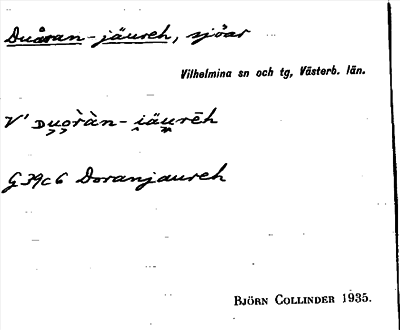 Duåran-jäureh, sjöar
Vilhelmina sn och tg, Västerb. län.
V' Duòràn-iäurēh
G 39c6 Doranjaureh
BJÖRN COLLINDER 1935.